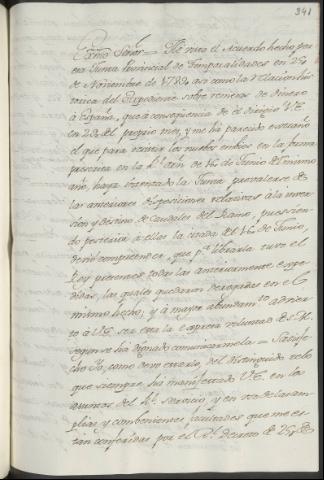 341
Exmo Señor = He visto el Acuerdo hecho por
esa Junta Provincial de Temporalidades en 25
de Noviembre de 1788, asi como la relacion his
torica del Expediente sobre remesas de dinero
à España, que à consequencia de el dirigio V.E.
en 28 del proprio mes, y me ha parecido estraño
el que para resistir los nuebos embios en la forma
prescrita en la Rl. orñ de 16 de Junio del mismo
año, haya intentado la Junta prevalerse de
las anteriores disposiciones relativas à la inver
sion y destino de caudales del Reino, pues sien
do posterior à ellas la citada de 16 de Junio,
devió comprender, que pa. librarla tuvo el
Rey presentes todas las anteriormente expe
didas, las quales quedaron derogadas en el
mismo hecho; y à mayor abundamto. advier
to à V.E. ser esta la expresa voluntad de S.M.
segun se ha dignado comunicarmela = Satisfe
cho Yo, como devo estarlo, del distinguido celo
que siempre ha manifestado V.E. en los
asuntos del Rl. servicio, y en uso de las am
plias y combenientes facultades que me es
tan conferidas por el Rl. Decreto de 25 de